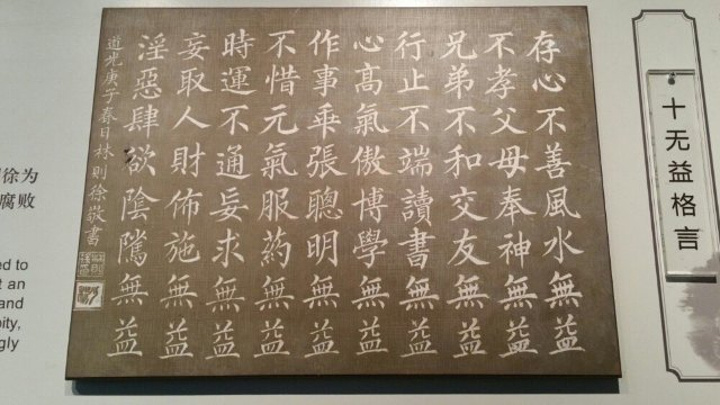 存心不善風水無益
不孝父母奉神無益
兄弟不和交友無益
行止不端讀書無益
心高氣傲博學無益
作事乖張聰明無益
不惜元氣服藥無益
時運不通妄求無益
妄取人財佈施無益
淫惡肆欲陰隲無益
道光庚子春日林則徐敬書
十无益格言
徐为
腐败
ed to
t an
and
ity,
gly